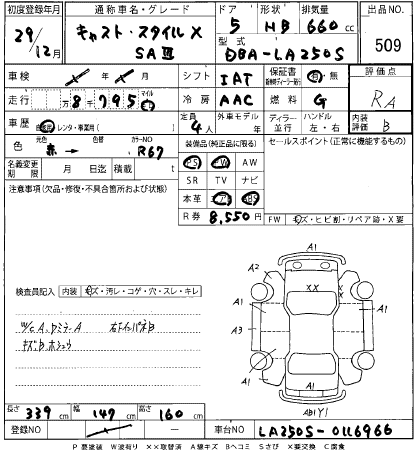 初度登録年月 通称車名・グレード ドア 形状 排気量 出品NO.
29/12月 キャスト・スタイル X SAⅢ 5 HB 660cc 509
型式 DBA-LA250S
車検 年 月 シフト IAT 保証書 有・無 評価点
走行 8千795 マイル 冷房 AAC 燃料 G RA
車歴 自家用・レンタ・事業用( ) 定員 4人 外車モデル 年 ディーラー・並行 ハンドル 左・右 内装評価 B
色 元色 赤→ 色替 カラーNO R67 装備品(純正品に限る) セールスポイント(正常に機能するもの)
名義変更期限 月 日迄 積載 t PS PW AW
注意事項(欠品・修復・不具合箇所および状態) SR TV ナビ
本革
R券 8,550円 FW キズ・ヒビ割・リペア跡・X要
A1
A2 XX
A1 A1
検査員記入 内装 キズ・汚レ・コゲ・穴・スレ・キレ
A3 A1
キズB ホシュウ
A1
AB1Y1
長さ 339cm 幅 147cm 高さ 160cm
登録NO 車台NO LA250S-0116966
P要塗装 W波有り XX取替済 A線キズ Bヘコミ Sさび X要交換 C腐食